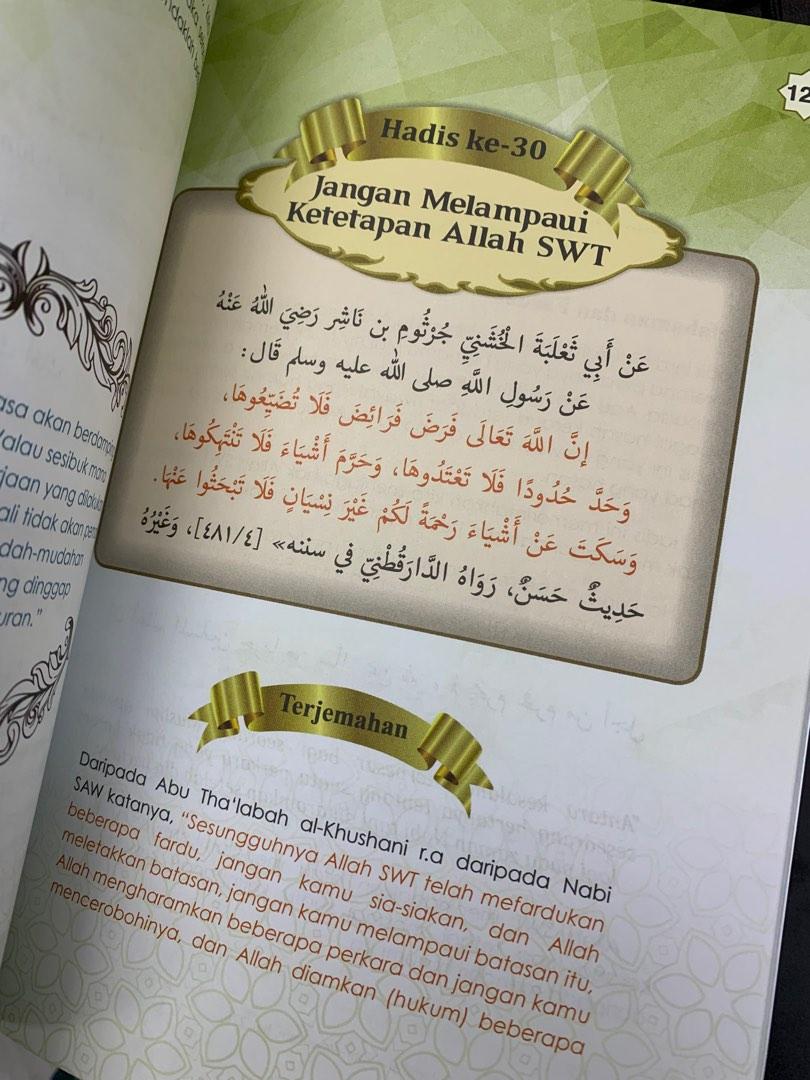 asa akan berdampin
Walau sesibuk mana
rjaan yang dilakukan
ali tidak akan
dah-mudahan
ng dinggap
uran."
12
Hadis ke-30
Jangan Melampaui
Ketetapan Allah SWT
عَنْ أَبِي ثَعْلَبَةَ الْخُشَنِيِّ جُرْثُومِ بن نَاشِر رَضِيَ اللهُ عَنْهُ
عَنْ رَسُولِ اللَّهِ صلى الله عليه وسلم قَال:
إِنَّ اللَّهَ تَعَالَى فَرَضَ فَرَائِضَ فَلَا تُضَيِّعُوهَا،
وَحَدَّ حُدُودًا فَلَا تَعْتَدُوهَا، وَحَرَّمَ أَشْيَاءَ فَلَا تَنْتَهِكُوهَا،
وَسَكَتَ عَنْ أَشْيَاءَ رَحْمَةً لَكُمْ غَيْرَ نِسْيَانٍ فَلَا تَبْحَثُوا عَنْهَا.
حَدِيثٌ حَسَنٌ، رَوَاهُ الدَّارَقُطْنِيّ في سننه» [٤٨١/٤]، وَغَيْرُهُ
Terjemahan
Daripada Abu Tha'labah al-Khushani r.a daripada Nabi
SAW katanya, "Sesungguhnya Allah SWT telah mefardukan
beberapa fardu, jangan kamu sia-siakan, dan Allah
meletakkan batasan, jangan kamu melampaui batasan itu,
Allah mengharamkan beberapa perkara dan jangan kamu
mencerobohinya, dan Allah diamkan (hukum) beberapa